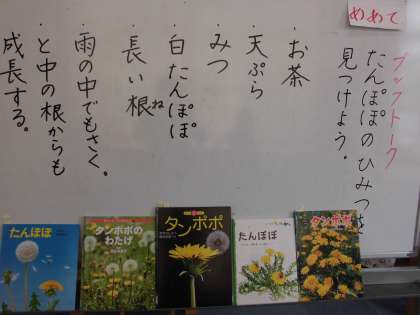 めあて
ブックトーク
たんぽぽのひみつを
見つけよう。
・お茶
・天ぷら
・みつ
・白たんぽぽ
・長い根
ね
・雨の中でもさく。
・と中の根からも
成長する。
たんぽぽ
タンポポの
わたげ
タンポポ
たんぽぽ
タンポポ